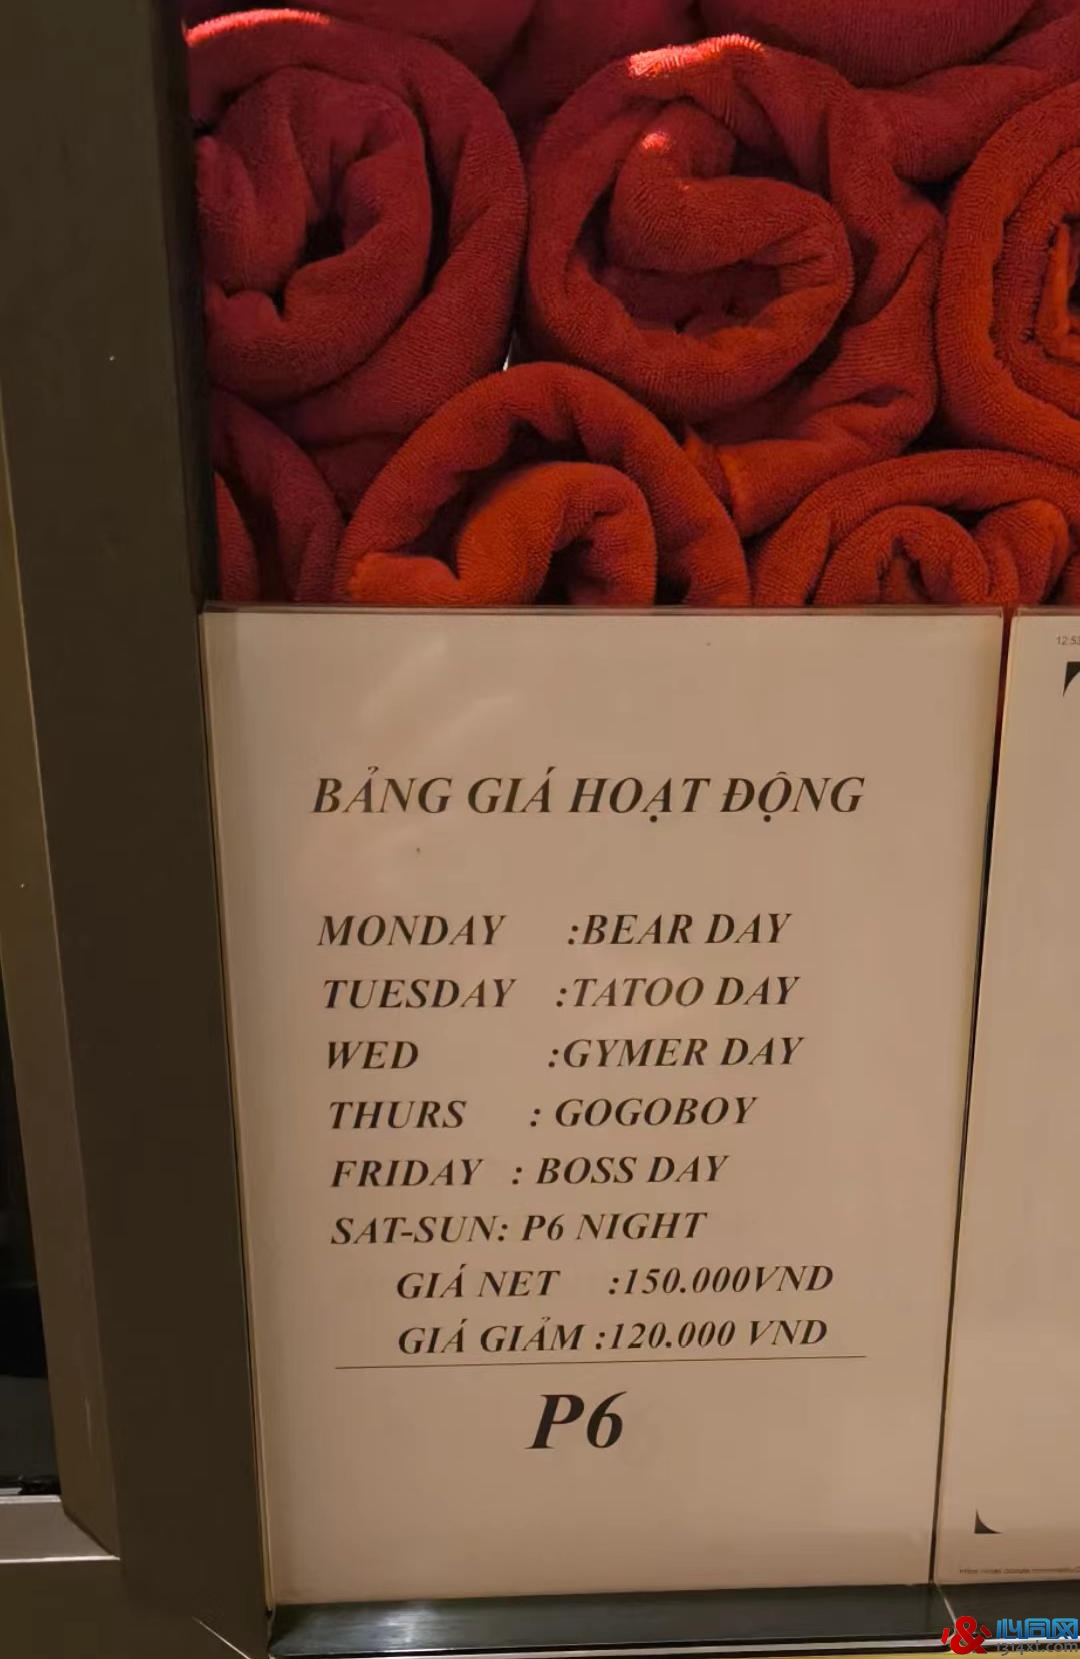 BẢNG GIÁ HOẠT ĐỘNG
MONDAY :BEAR DAY
TUESDAY :TATOO DAY
WED :GYMER DAY
THURS : GOGOBOY
FRIDAY : BOSS DAY
SAT-SUN: P6 NIGHT
GIÁ NET :150.000VND
GIÁ GIẢM :120.000 VND
P6
12:53
心同网
1314xt.com